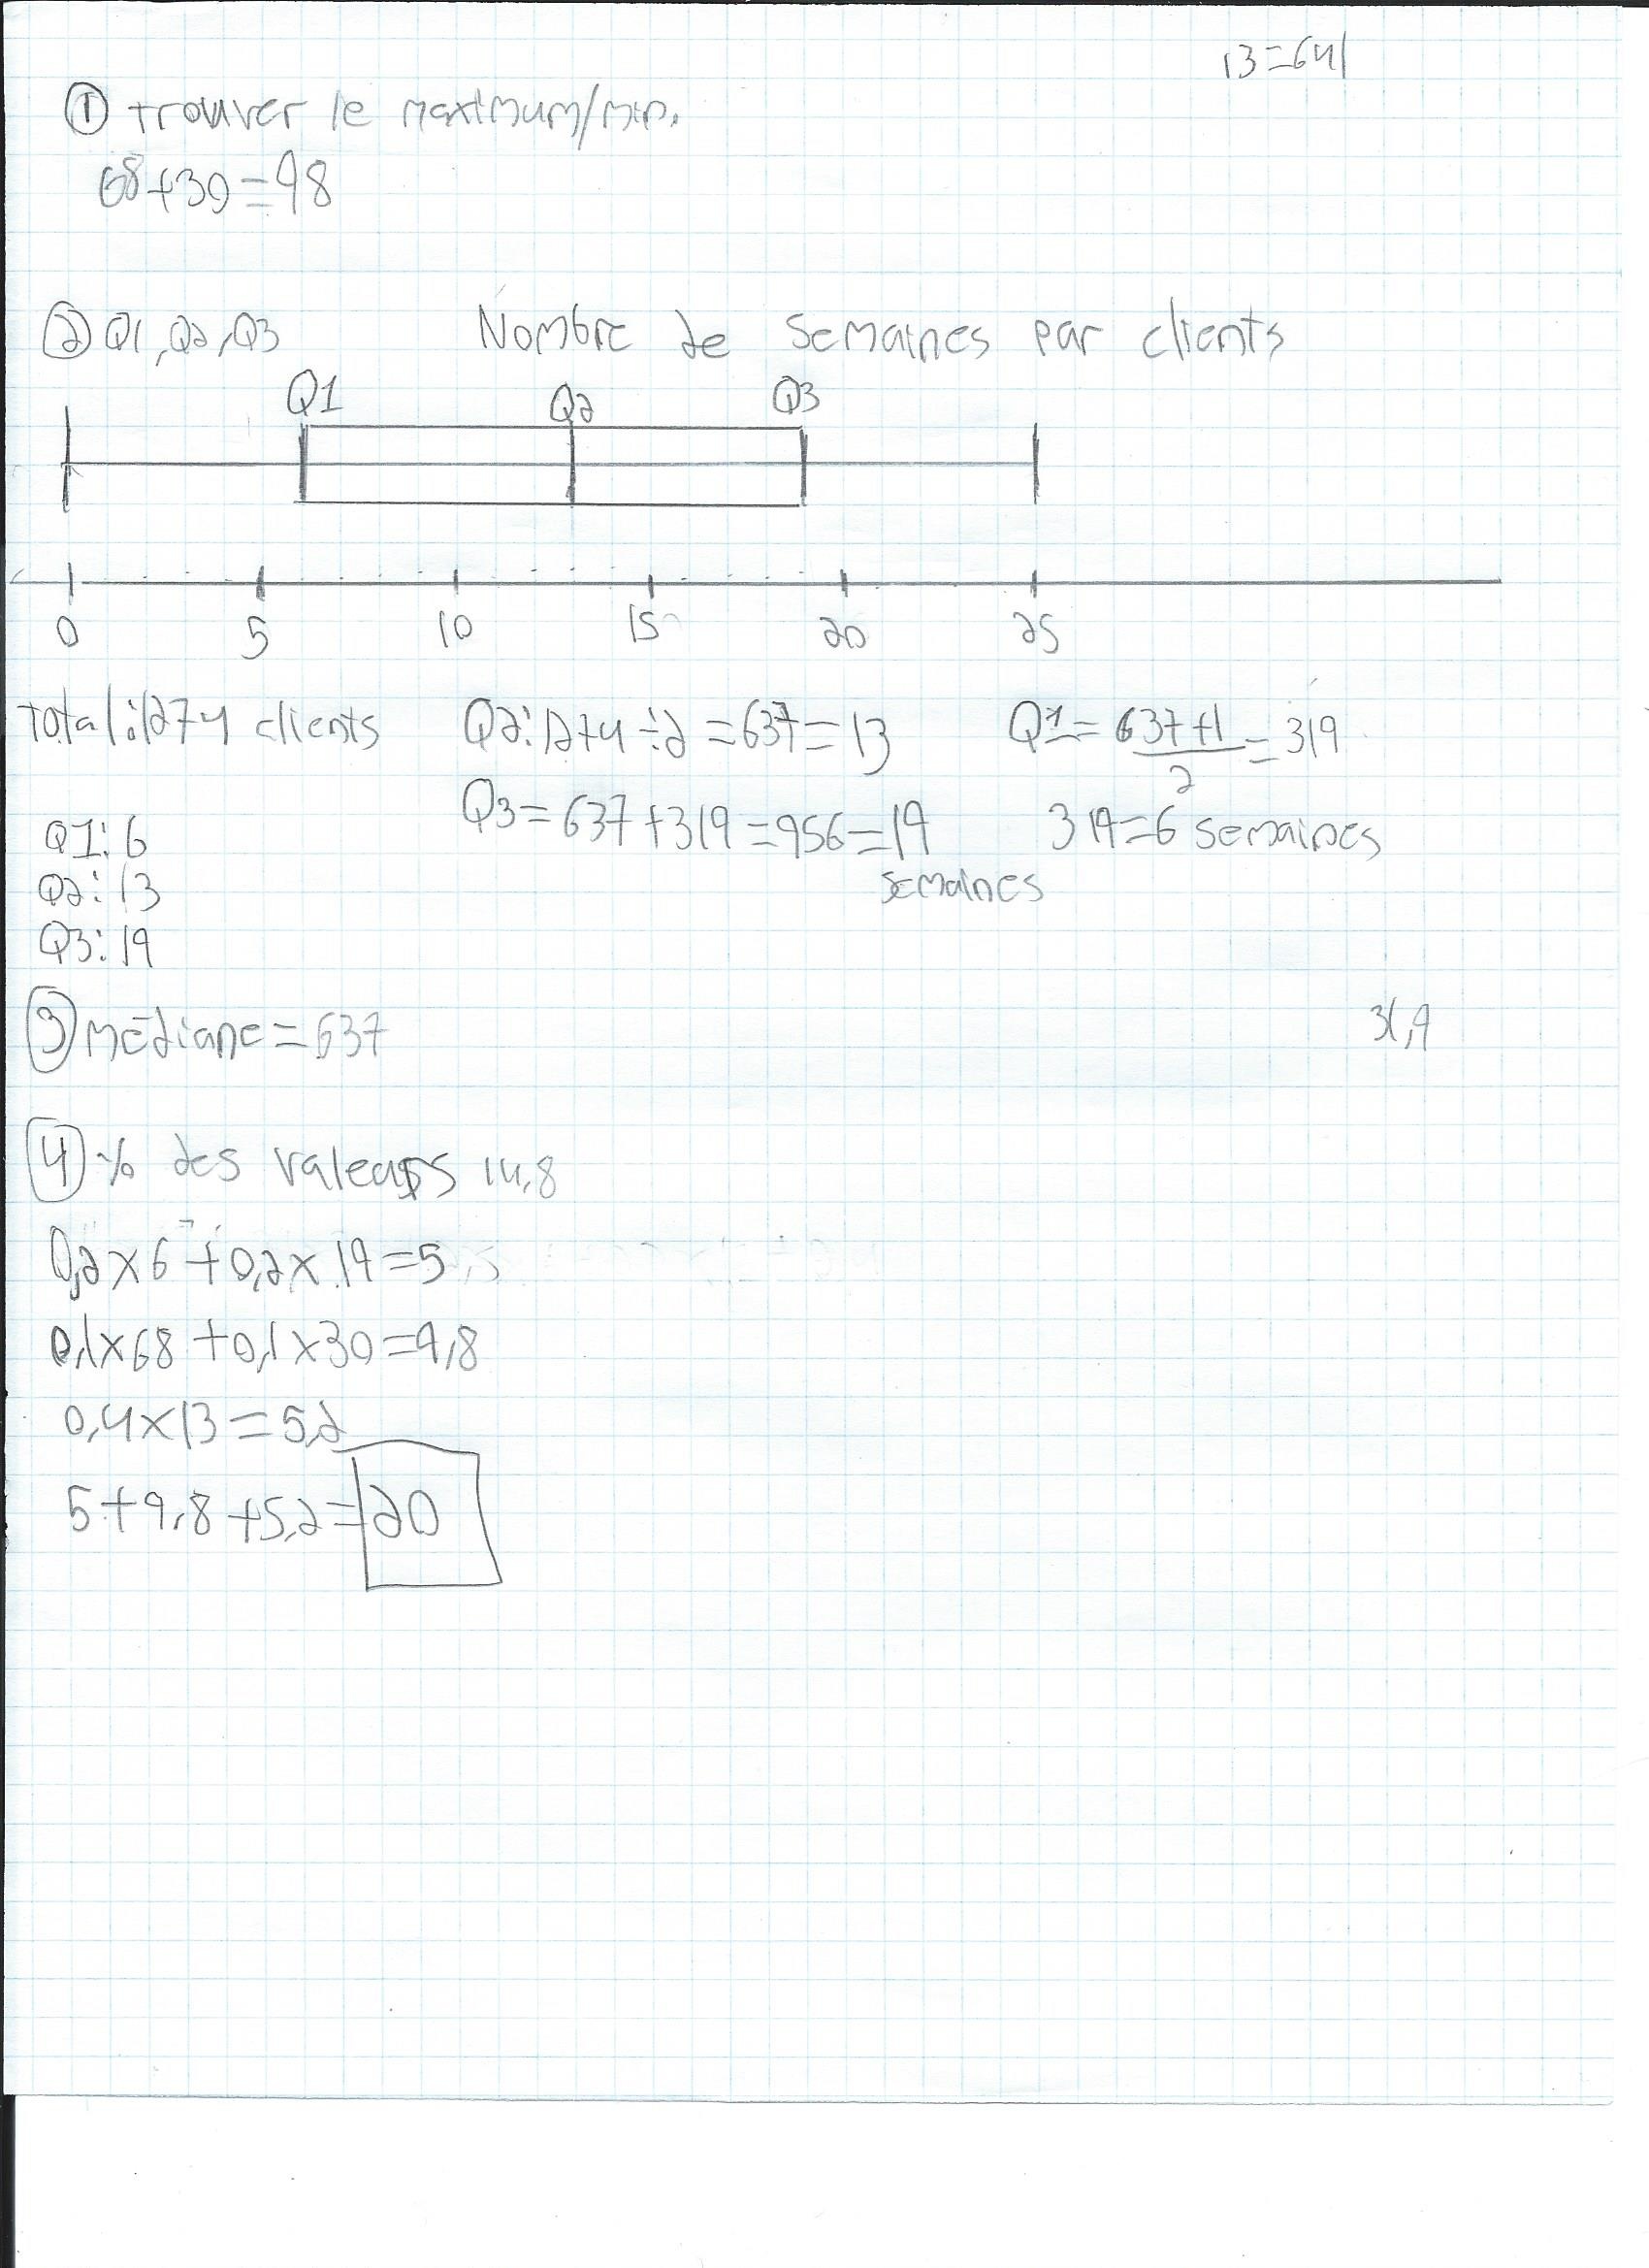 13=641
① trouver le maximum/min.
68+30=98
② Q1, Q2, Q3 Nombre de semaines par clients
Q1 Q2 Q3
0 5 10 15 20 25
Total: 1274 clients Q2: 1274÷2=637=13 Q1=637+1/2=319
Q3=637+319=956=19 semaines 319=6 semaines
Q1: 6
Q2: 13
Q3: 19
③ médiane=637
④ % des valeurs 14,8
0,2×6+0,2×19=5
0,1×68+0,1×30=9,8
0,4×13=5,2
5+9,8+5,2=20